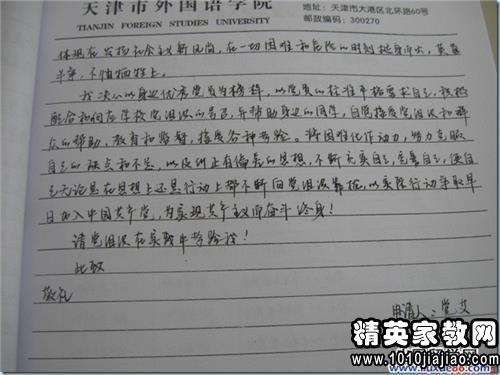 天津市外国语学院
TIANJIN FOREIGN STUDIES UNIVERSITY
地址:天津市大港区北环路60号
邮政编码:300270
体现在发扬社会主义新风尚,在一切困难和危险的时刻挺身而出,英勇
斗争,不怕牺牲上。
我决心以身边优秀党员为榜样,以党员的标准严格要求自己,积极
配合和团结学校党组织的号召,并帮助身边的同学,自觉接受党组织和群
众的帮助、教育和监督,接受各种考验。将困难化作动力,努力克服
自己的缺点和不足,以及纠正有偏差的思想,不断充实自己,完善自己,使自
己无论是在思想上还是行动上都不断向党组织靠拢,以实际行动争取早
日加入中国共产党,为实现共产主义而奋斗终身!
请党组织在实践中考验我!
此致
敬礼
申请人:
精英家教网
www.1010jiajiao.com